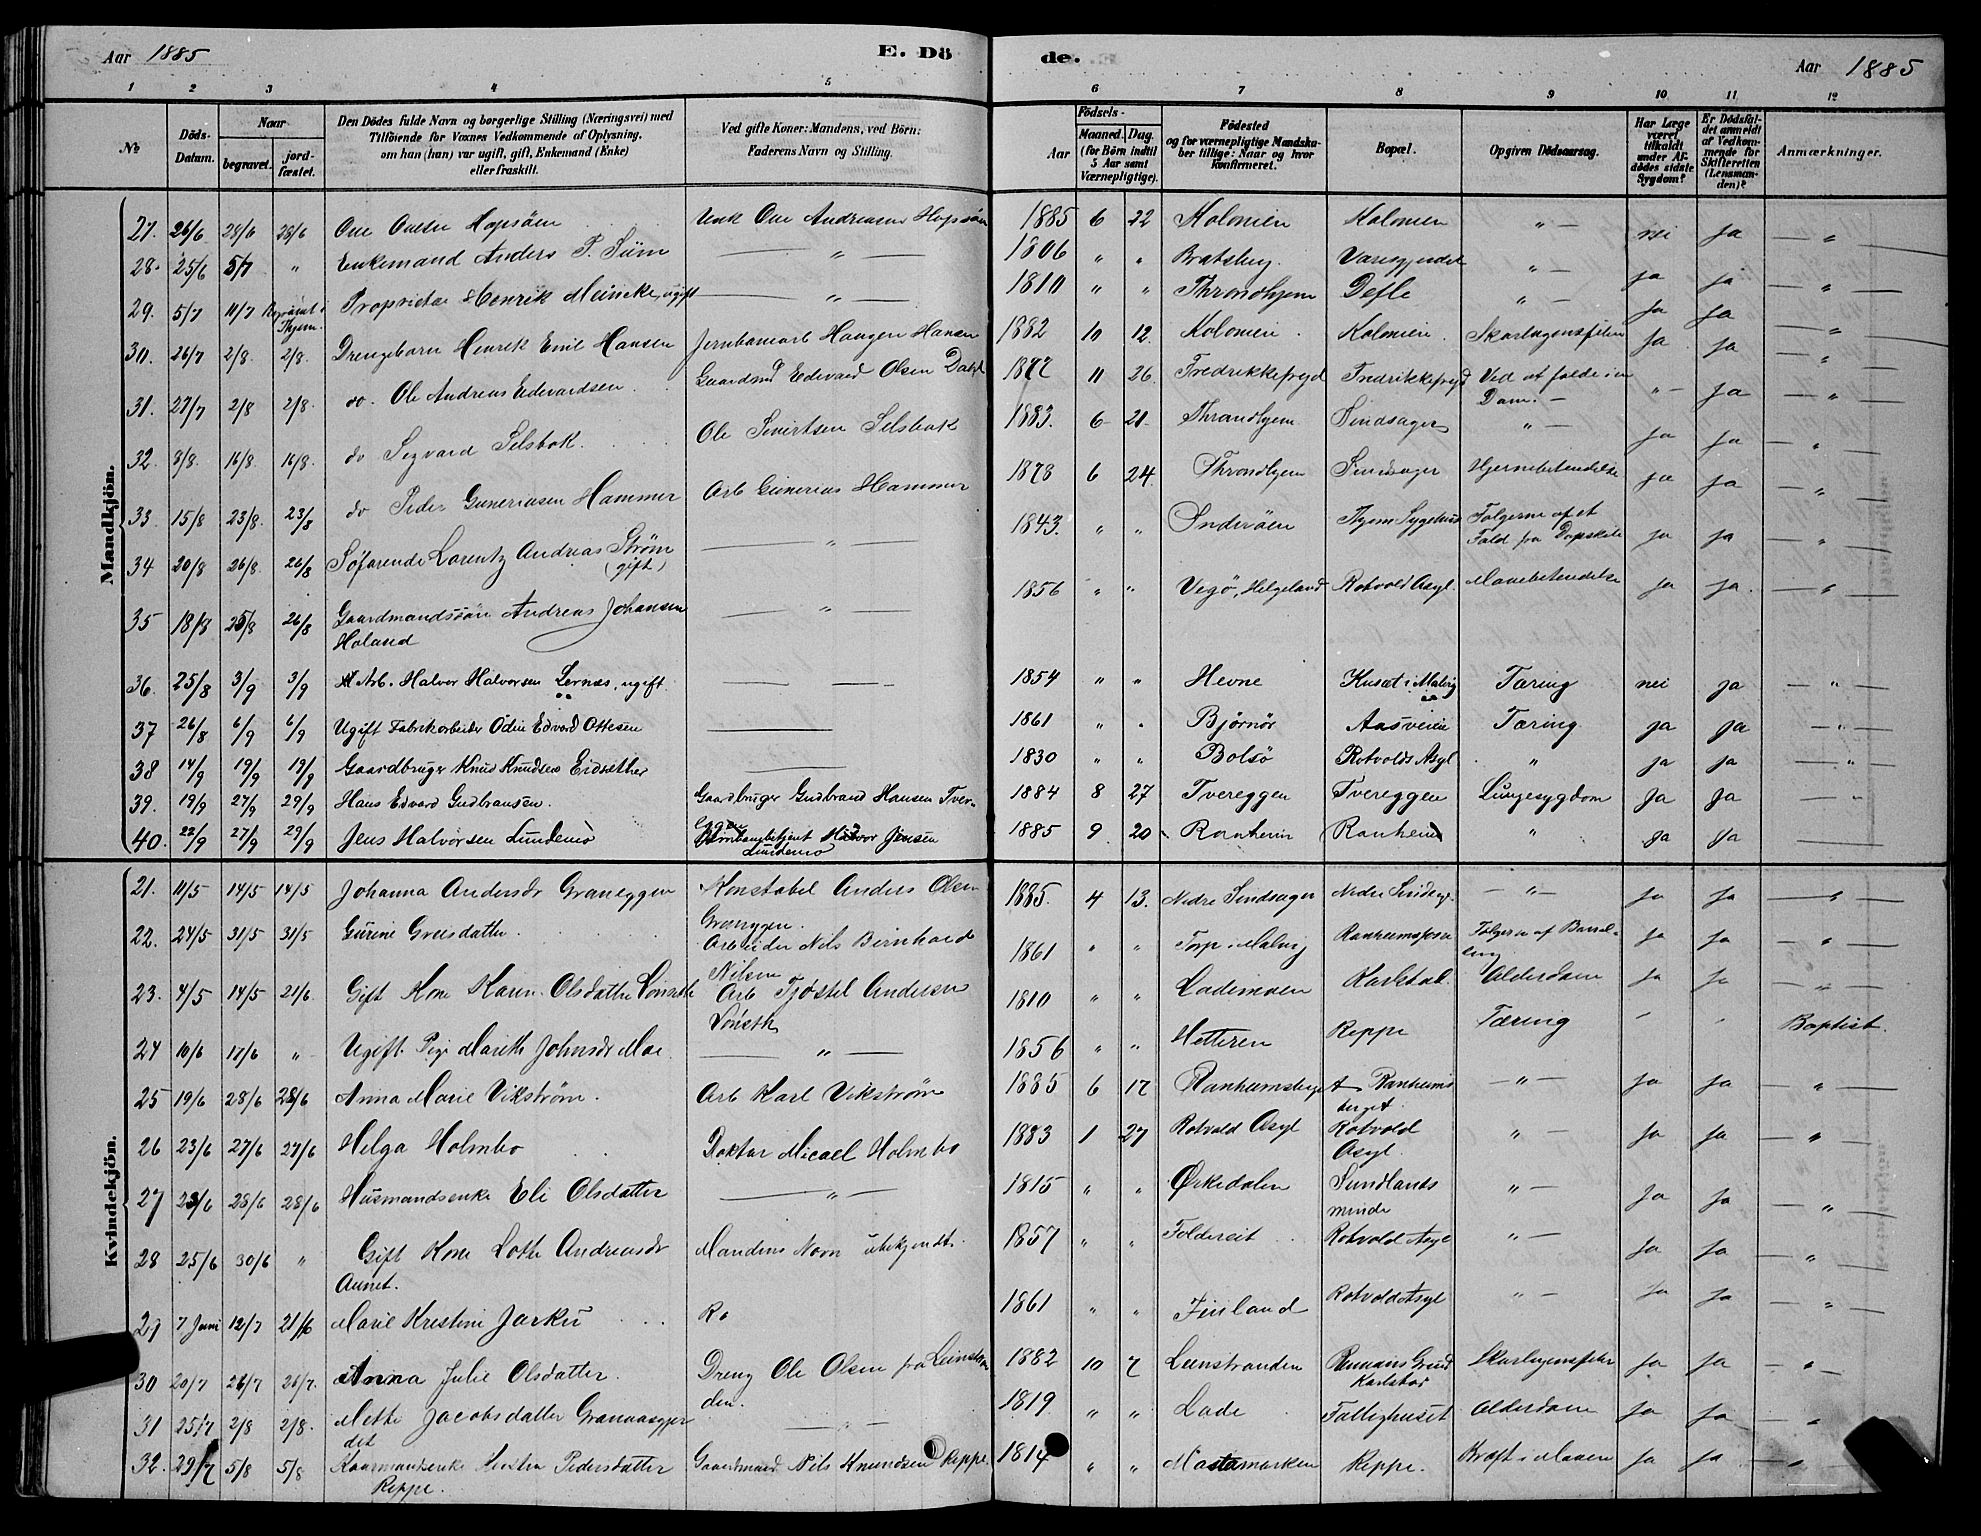 Aar 1885 E. Dö
de. Aar 1885
1 2 3 4 5 6 7 8 9 10 11 12
No
Döds-Datum.
Naar
begravet.
jordfæstet.
Den Dödes fulde Navn og borgerlige Stilling (Næringsvei) med
Tilföiende for Voxnes Vedkommende af Oplysning,
om han (hun) var ugift, gift, Enkemand (Enke)
eller fraskilt.
Ved gifte Koner: Mandens, ved Börn:
Faderens Navn og Stilling.
Födsels-
Aar
Maaned. Dag.
(for Börn indtil
5 Aar samt
Værnepligtige).
Födested
og for værnepligtige Mandskaber tillige: Naar og hvor
konfirmeret.
Bopæl.
Opgiven Dödsaarsag.
Har Læge
været
tilkaldt
under Afdödes sidste
Sygdom?
Er Dödsfaldet anmeldt
af Vedkommende for
Skifteretten
(Lensmanden)?
Anmærkninger.
Mandkjön.
27. 26/6 28/6 28/6 Ove Ovesen Hopsöen Ove Andreasen Hopsöen 1885 6 22 Kolonien Kolonien " nei ja "
28. 25/6 5/7 " Enkemand Anders P. Siim " 1806 " " Bratsberg " ja ja "
29. 5/7 11/7 Proprietær Henrik Meincke, ugift " 1810 " " Throndhjem Devle " ja ja "
30. 26/7 2/8 2/8. Drengebarn Henrik Emil Hansen Jernbanearb Haagen Hansen 1882 10 12. Kolonien Kolonien. Skarlagensfeber ja ja "
31. 27/7 2/8 2/8. do. Ole Andreas Edvardsen Gaardmd Edvard Olsen Dahl 1872 11 26 Fredrikkefryd Fredrikkefryd Ved at falde i en
Dam. " ja "
32. 3/8. 16/8. 16/8. do Sigvard Selsbak Ole Sivertsen Selsbak 1883. 6 21 Throndhjem Sindsager " ja ja "
33. 15/8 23/8. 23/8 do Peder Guneriusen Hammer Arb Gunerius Hammer 1878 6 24 Throndhjem Sindsager Hjernebetendelse ja ja "
34 20/8 26/8. 26/8 Søfarende Lorentz Andreas Strøm
(gift) " 1843. " " Inderöen Thjem Sygehus Følgerne af et
Fald fra ja ja "
35 18/8 25/8 26/8 Gaardmandssön Andreas Johansen
Holand " 1856 " " Vegö, Helgeland Rotvold Asyl. Mavebetendelse ja ja. "
36. 25/8 3/9 3/9 Arb. Halvor Halvorsen Lernes, ugift 1854 " " Hevne Husæt i Malvig Tæring nei ja "
37 26/8 6/9 6/9 Ugift Fabrikarbeider Odin Edvard Ottesen 1861 " " Bjørnør Aasveien Tæring ja ja "
38 14/9 19/9 19/9 Gaardbruger Knud Knudsen Eidsæther 1830 " " Bolsö Rotvolds Asyl " ja ja "
39. 19/9 27/9 29/9 Hans Edvard Gudbransen. Gaardbruger Gudbrand Hansen Tver-
eggen 1884 8 27 Tvereggen Tvereggen Lungesygdom ja ja "
40. 22/9 27/9 29/9 Jens Halvorsen Lundemo Jernbanebetjent Halvor Jensen
Lundemo 1885 9 20 Ranheim Ranheim " ja ja
Kvindekjön.
21. 11/5 14/5 14/5 Johanna Andersdr Graneggen Konstabel Anders Olsen
Graneggen. 1885. 4 13. Nedre Sindsager Nedre " ja ja "
22. 24/5 31/5 31/5 Gurine Greisdatter. Arbeider Nils Bernhard
Nilsen 1861 " " Torp i Malvig Følgerne af Barsel-
eng ja ja "
23. 4/5 14/5 21/6. Gift Kone Karen Olsdatter Vonseth Arb Tjøstel Andersen
Vonseth 1810 " " Lademoen Karlstad. Alderdom ja ja "
24 10/6 17/6 " Ugift Pige Mareth Johnsdr Moe " 1856 " " Hitteren Reppe Tæring " " Baptist.
25 19/6 28/6 28/6 Anna Marie Vikstrøm. Arb Karl Vikstrøm 1885 6 17 Ranheimsberget Ranheims
berget " ja ja "
26 23/6 27/6 27/6 Helga Holmbo Doktor Micael Holmbo 1883 1 27 Rotvold Asyl Rotvold
Asyl. " ja ja "
27 23/6 28/6 28/6 Husmandsenke Eli Olsdatter " 1815 " " Ørkedalen Sundlands
minde " ja ja "
28 25/6 30/6 " Gift Kone Lotte Andreasdr
Aunet. Mandens Navn ubekjendt. 1857 " " Foldereit Rotvold Asyl " ja ja "
29 7 Juni 12/7 21/6 Marie Kristine Jarku 1861 " " Finland Rotvold Asyl " ja ja "
30 20/7 26/7 26/7. Anna Julie Olsdatter. Dreng Ole Olsen fra Leinstran
den. 1882 10 7 Leenstranden Grund
Karlstad Skarlagensfeber ja ja "
31 25/7 2/8 2/8. Mette Jacobsdatter
det " 1819 " " Lade Fattighuset Alderdom ja ja "
32. 29/7 5/8 5/8 Kaarmandsenke Kirsten Pedersdatter
Reppe. Gaardmand Nils Knundsen Reppe. 1814 " " Mostamarken Reppe. Kræft i Maven ja ja "